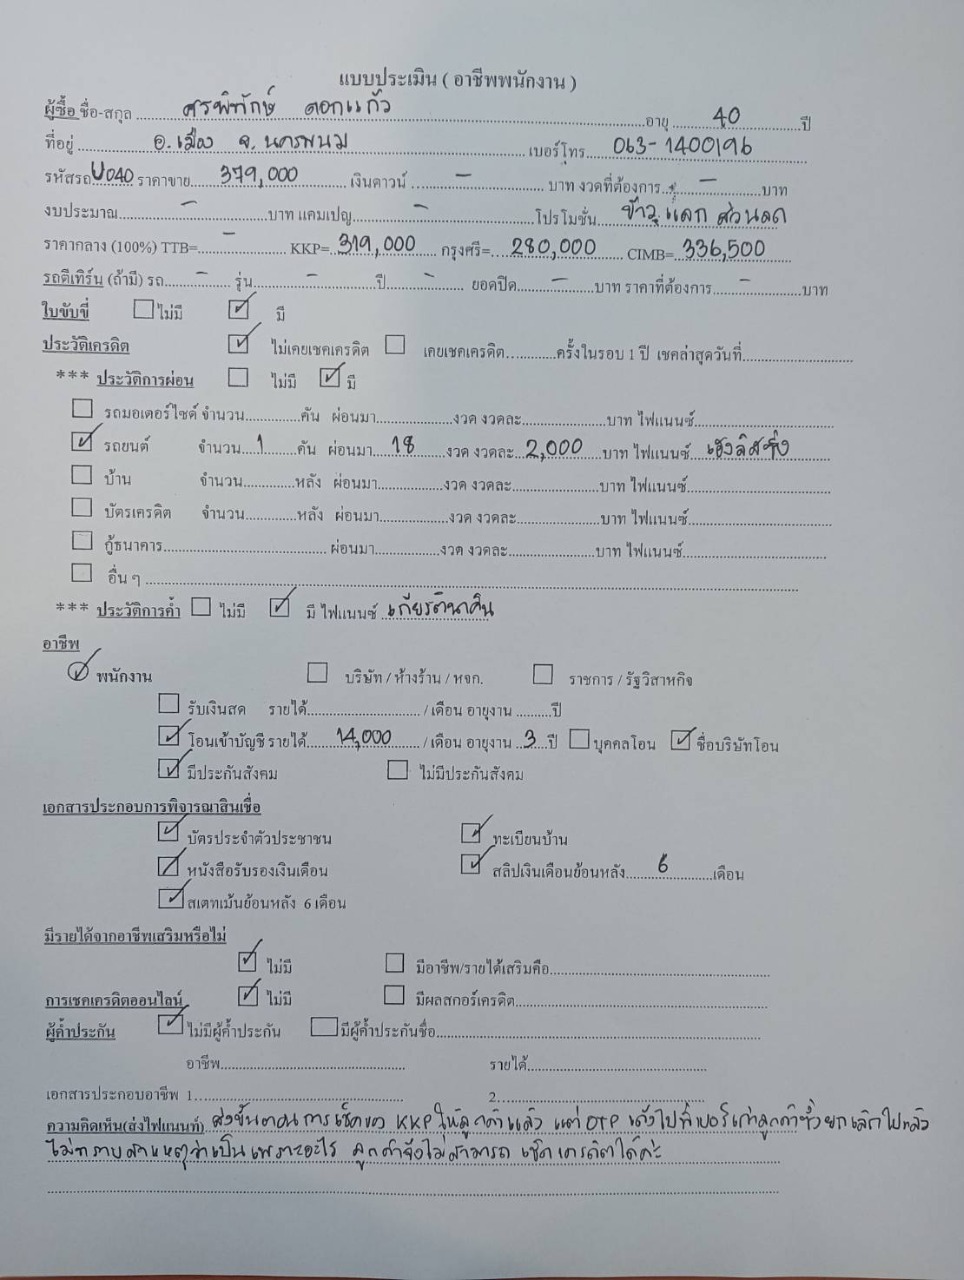 แบบประเมิน ( อาชีพพนักงาน )
ผู้ซื้อ ชื่อ-สกุล ศรพิทักษ์ ดอกแก้ว อายุ 40 ปี
ที่อยู่ อ.เมือง จ.นครพนม เบอร์โทร 063-1400196
รหัสรถ U040 ราคาขาย 379,000 เงินดาวน์ - บาท งวดที่ต้องการ - บาท
งบประมาณ - บาท แคมเปญ - โปรโมชั่น แลก ส่วนลด
ราคากลาง (100%) TTB= - KKP= 319,000 กรุงศรี= 280,000 CIMB= 336,500
รถตีเทิร์น (ถ้ามี) รถ - รุ่น - ปี - ยอดปิด - บาท ราคาที่ต้องการ - บาท
ใบขับขี่ ไม่มี มี
ประวัติเครดิต ไม่เคยเชคเครดิต เคยเชคเครดิต ครั้งในรอบ 1 ปี เชคล่าสุดวันที่
*** ประวัติการผ่อน ไม่มี มี
รถมอเตอร์ไซด์ จำนวน คัน ผ่อนมา งวด งวดละ บาท ไฟแนนซ์
รถยนต์ จำนวน 1 คัน ผ่อนมา 18 งวด งวดละ 2,000 บาท ไฟแนนซ์ เฮงลิสซิ่ง
บ้าน จำนวน หลัง ผ่อนมา งวด งวดละ บาท ไฟแนนซ์
บัตรเครดิต จำนวน หลัง ผ่อนมา งวด งวดละ บาท ไฟแนนซ์
กู้ธนาคาร ผ่อนมา งวด งวดละ บาท ไฟแนนซ์
อื่น ๆ
*** ประวัติการค้ำ ไม่มี มี ไฟแนนซ์ เกียรตินาคิน
อาชีพ
พนักงาน บริษัท / ห้างร้าน / หจก. ราชการ / รัฐวิสาหกิจ
รับเงินสด รายได้ / เดือน อายุงาน ปี
โอนเข้าบัญชี รายได้ 14,000 / เดือน อายุงาน 3 ปี บุคคลโอน ชื่อบริษัทโอน
มีประกันสังคม ไม่มีประกันสังคม
เอกสารประกอบการพิจารณาสินเชื่อ
บัตรประจำตัวประชาชน ทะเบียนบ้าน
หนังสือรับรองเงินเดือน สลิปเงินเดือนย้อนหลัง 6 เดือน
สเตทเม้นย้อนหลัง 6 เดือน
มีรายได้จากอาชีพเสริมหรือไม่
ไม่มี มีอาชีพ/รายได้เสริมคือ
การเชคเครดิตออนไลน์ ไม่มี มีผลสกอร์เครดิต
ผู้ค้ำประกัน ไม่มีผู้ค้ำประกัน มีผู้ค้ำประกันชื่อ
อาชีพ รายได้
เอกสารประกอบอาชีพ 1 2
ความคิดเห็น(ส่งไฟแนนท์) ส่งขั้นตอนการเช็คของ KKP ให้ลูกค้าแล้ว แต่ OTP เด้งไปที่เบอร์เก่าลูกค้าที่ยกเลิกไปแล้ว
ไม่ทราบสาเหตุว่าเป็นเพราะอะไร ลูกค้าจึงไม่สามารถ เช็คเครดิตได้ค่ะ